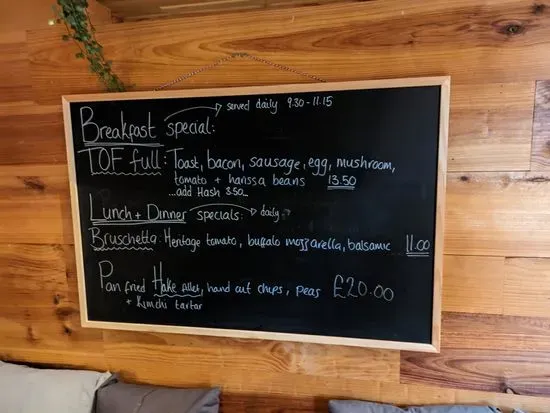 Breakfast special: served daily 9.30-11.15
TOF full: Toast, bacon, sausage, egg, mushroom,
tomato + harissa beans 13.50
...add Hash 3.50...
Lunch + Dinner specials: daily
Bruschetta: Heritage tomato, buffalo mozzarella, balsamic 11.00
Pan fried Hake fillet, hand cut chips, peas £20.00
+ Kimchi tartar